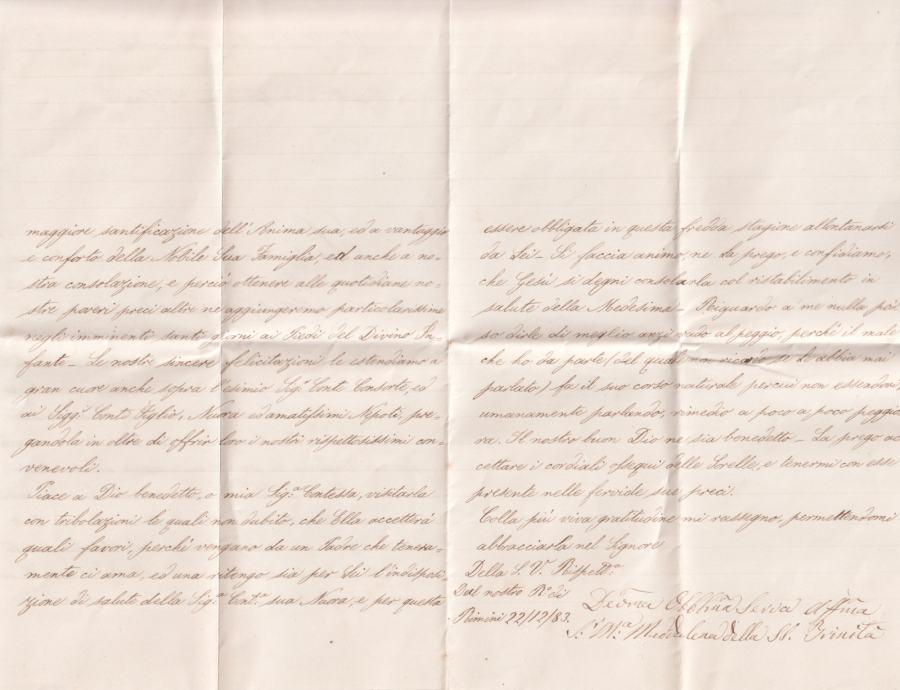 maggiore santificazione dell'Anima sua, ed a vantaggio
e conforto della Nobile Sua Famiglia, ed anche a no-
stra consolazione, e perciò ottenere alle quotidiane no-
stre poveri preci altre ne aggiungeremo particolarissime
negli imminenti santi giorni ai Piedi del Divino In-
fante – Le nostre sincere felicitazioni le estendiamo a
gran cuore anche sopra l'esimio Sig.r Conte Consorte, ed
ai Sigg.i Conti Figlio, Nuora ed amatissimi Nipoti, pre-
gandola in oltre di offrir loro i nostri rispettosissimi con-
venevoli.
Piace a Dio benedetto, o mia Sig.a Contessa, visitarla
con tribolazioni le quali non dubito, che Ella accetterà
quali favori, perché vengano da un Padre che tenera-
mente ci ama, ed una ritengo sia per Lei l'indisposi-
zione di salute della Sig.a Cont.a sua Nuora, e per questa
essere obbligata in questa fredda stagione allontanarsi
da Lei – Si faccia animo, ne La prego, e confidiamo,
che Gesù si degni consolarla col ristabilimento in
salute della Medesima – Riguardo a me nulla pos-
so dirle di meglio anzi vado al peggio, perché il male
che ho da parte (del quale non ricordo se Le abbia mai
parlato) fa il suo corso naturale percui non essendovi,
umanamente parlando, rimedio a poco a poco peggio
ra. Il nostro buon Dio ne sia benedetto – La prego ac
cettare i cordiali ossequi delle Sorelle, e tenermi con esse
presente nelle fervide sue preci.
Colla più viva gratitudine mi rassegno, permettendomi
abbracciarla nel Signore
Della S. V. Rispett.a
Dal nostro R. di
Rimini 22/12/83.
Devma Obblma Serva Affma
S.r M.a Maddalena della SS. Trinità